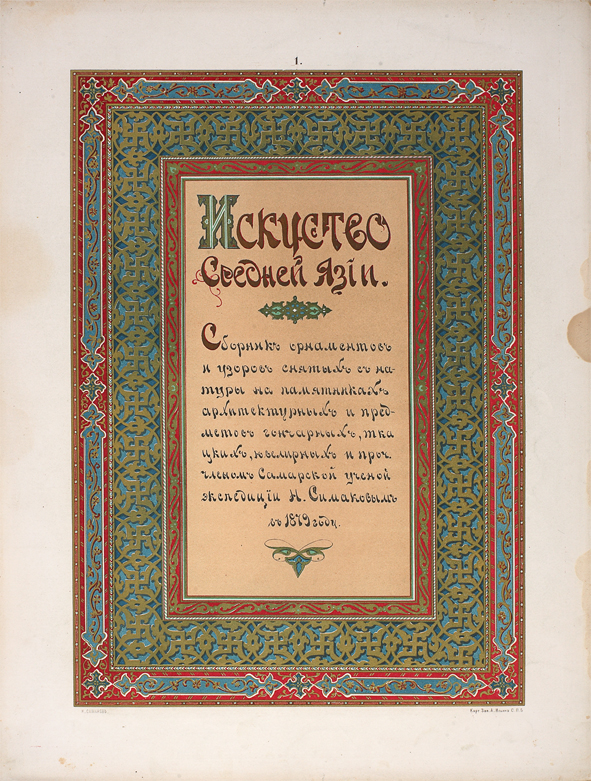 1.
Искуство
Средней Азіи.
Сборникъ орнаментовъ
и узоровъ снятыхъ съ на-
туры на памятникахъ
архитектурныхъ и пред-
метовъ гончарныхъ, тка
цкихъ, ювелирныхъ и проч.
членомъ Самарской ученой
экспедиціи Н. Симаковымъ
въ 1879 году.
Н. СИМАКОВЪ.
Карт. Зав. А. Ильина С.П.Б.